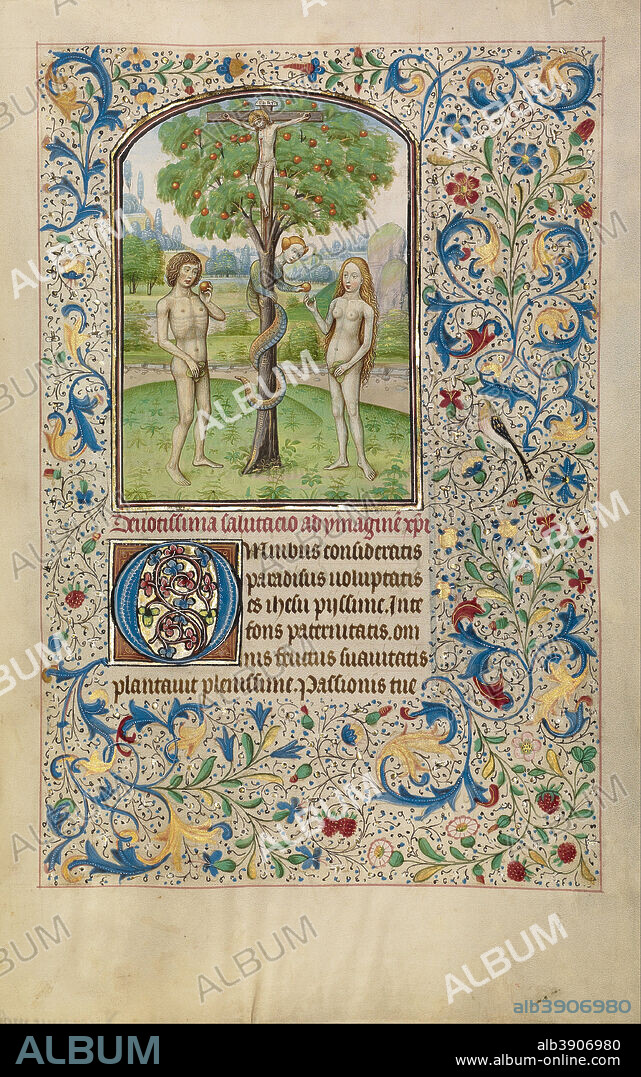 Deuotissima salutacio ad ymagine xpi
OMnibus consideratis
paradisus uoluptatis
es ihesu pijssime. Inte
fons paternitatis. om
nis fructus suauitatis
plantauit plenissime. Passionis tue
ALBUM
alb3906980
ALBUM
alb3906980
www.album-online.com